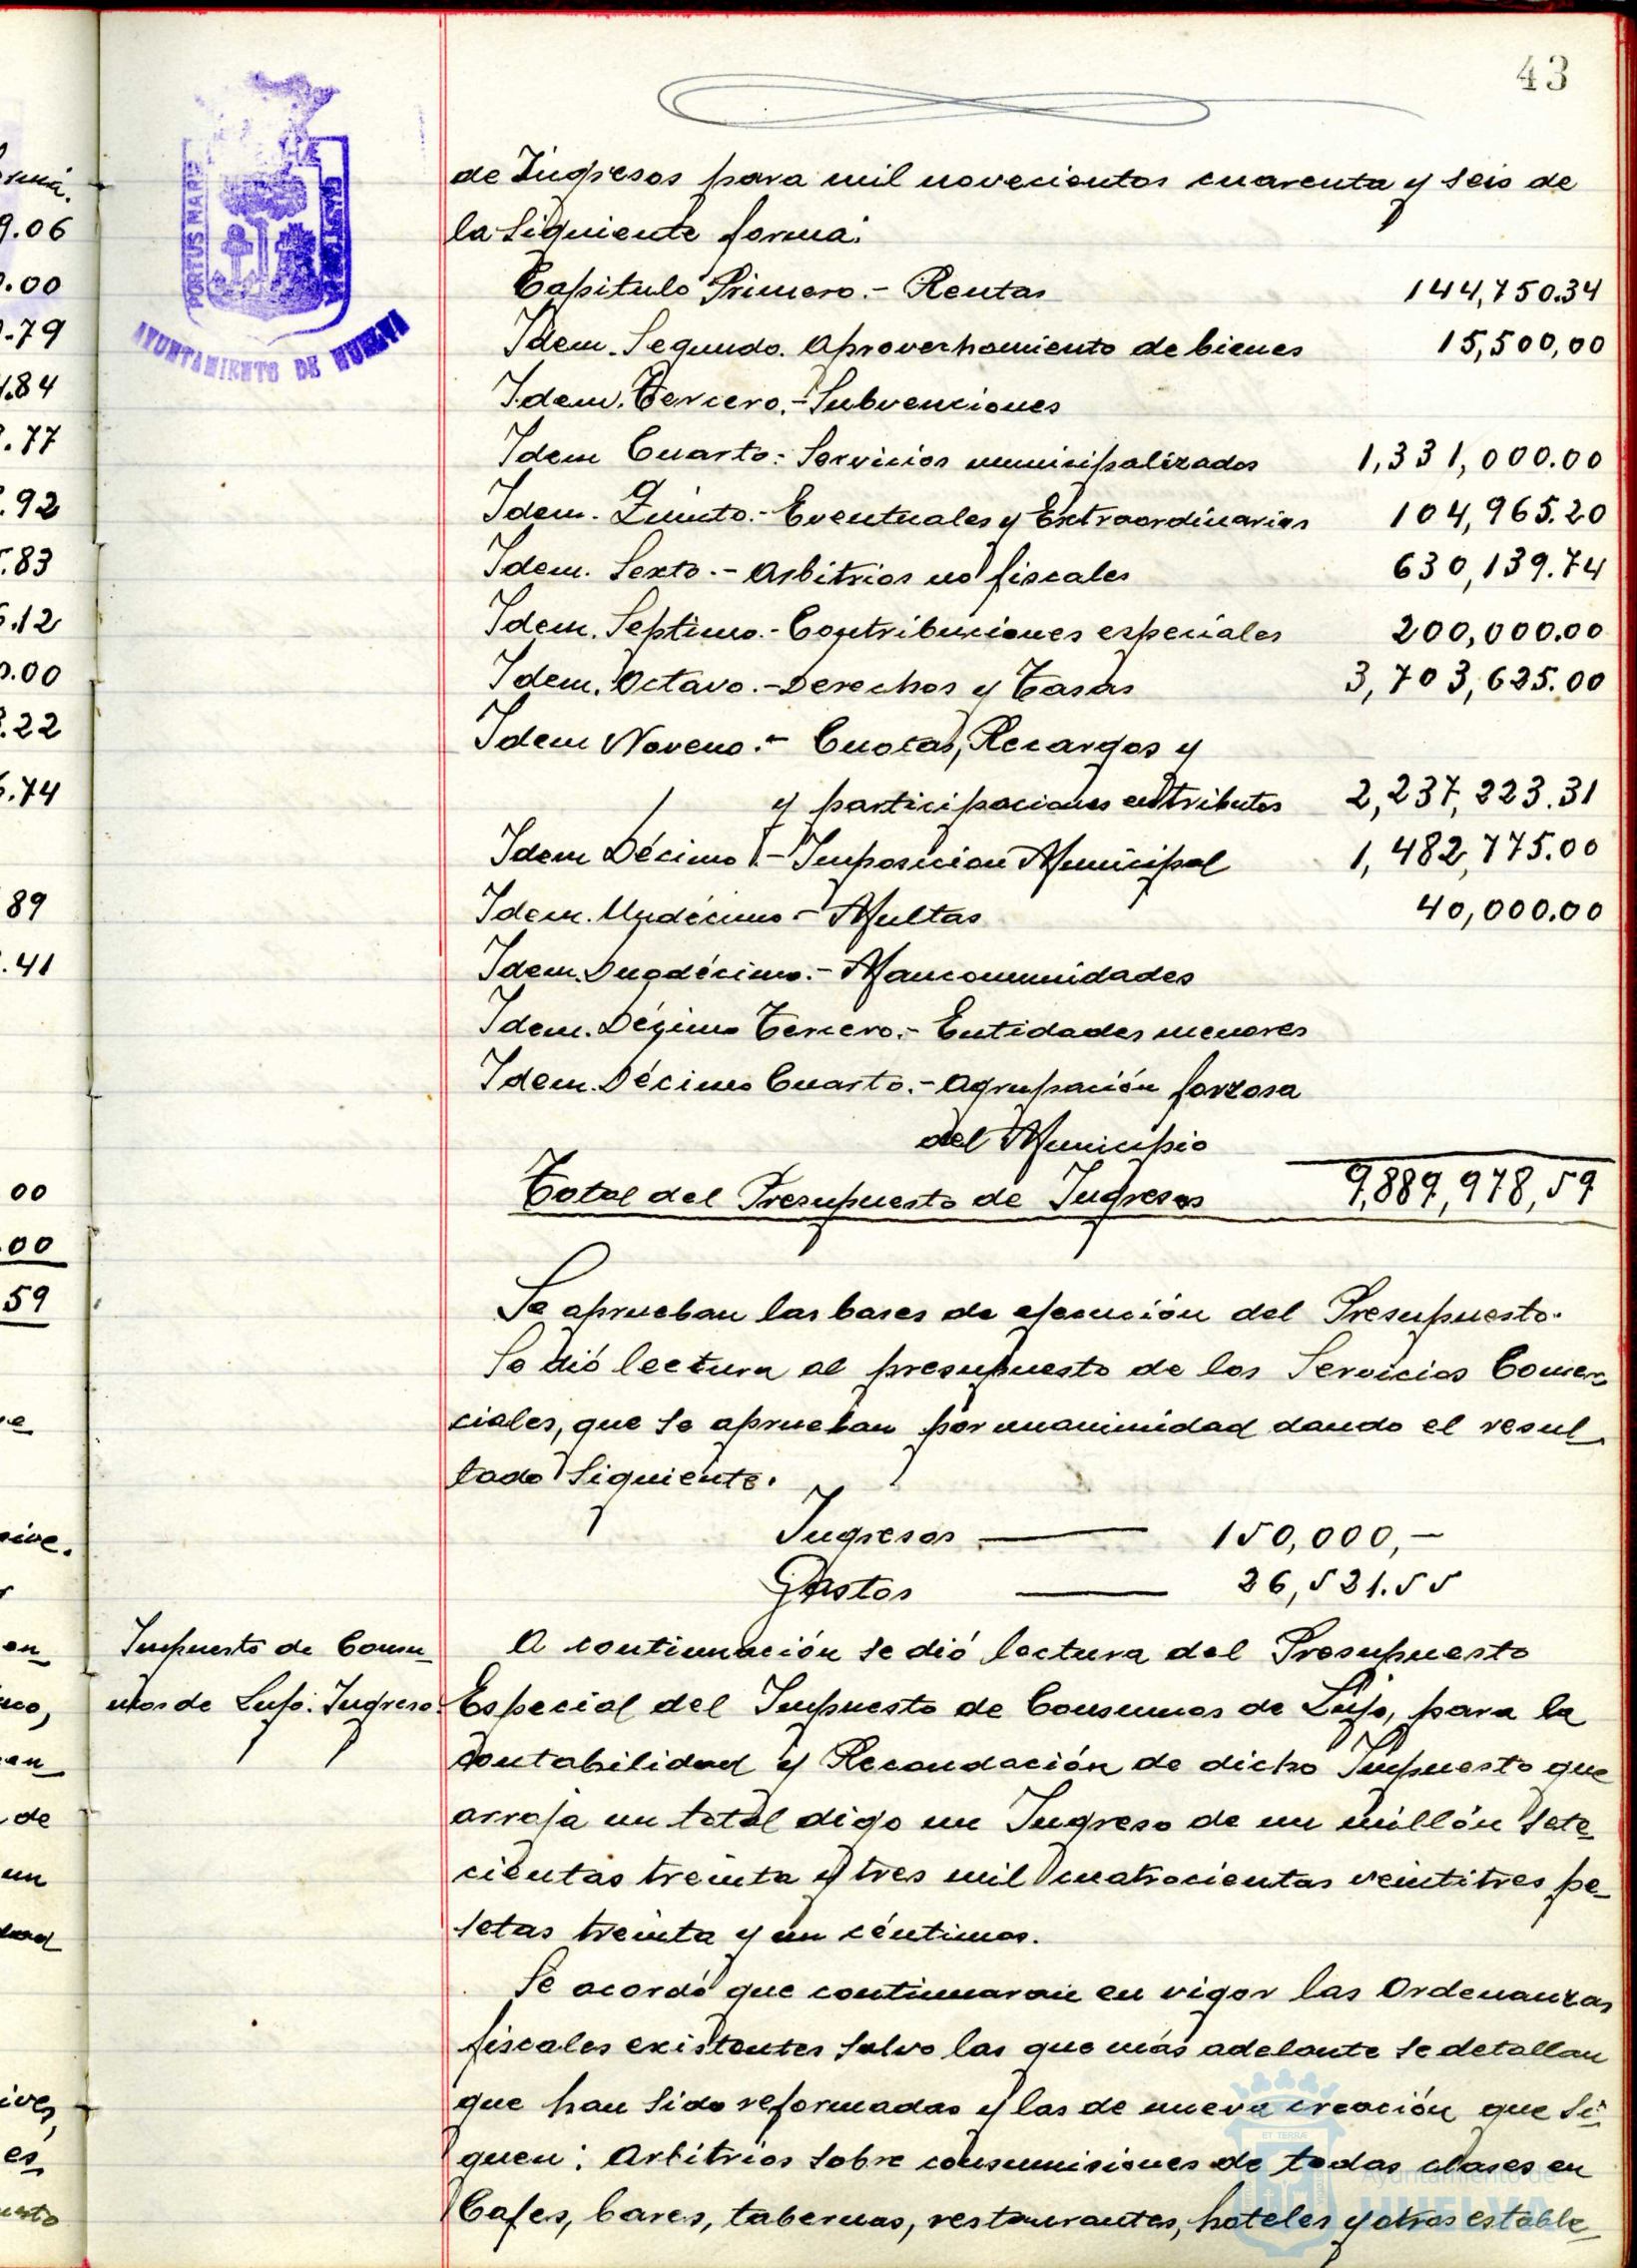 43
PORTUS MARIS
AYUNTAMIENTO DE HUELVA
de Ingresos para mil novecientos cuarenta y seis de
la siguiente forma:
Capitulo Primero.- Rentas 144,750.34
Idem. Segundo. Aprovechamiento de bienes 15,500,00
Idem. Tercero.- Subvenciones
Idem Cuarto: Servicios municipalizados 1,331,000.00
Idem. Quinto.- Eventuales y Extraordinarios 104,965.20
Idem. Sexto.- Arbitrios no fiscales 630,139.74
Idem. Septimo.- Contribuciones especiales 200,000.00
Idem. Octavo.- Derechos y Tasas 3,703,625.00
Idem Noveno.- Cuotas, Recargos y
y participaciones en tributos 2,237,223.31
Idem Décimo.- Imposicion Municipal 1,482,775.00
Idem. Undécimo - Multas 40,000.00
Idem. Duodécimo.- Mancomunidades
Idem. Décimo Tercero.- Entidades menores
Idem. Décimo Cuarto.- Agrupación forzosa
del Municipio
Total del Presupuesto de Ingresos 9,889,978,59
Se aprueban las bases de ejecución del Presupuesto.
Se dió lectura al presupuesto de los Servicios Comer-
ciales, que se aprueban por unanimidad dando el resul-
tado siguiente.
Ingresos — 150,000,-
Gastos — 26,521.55
Impuesto de Consu-
mos de Lujo. Ingreso.
A continuación se dió lectura del Presupuesto
Especial del Impuesto de Consumos de Lujo, para la
contabilidad y Recaudación de dicho Impuesto que
arroja un total digo un Ingreso de un millón sete-
cientas treinta y tres mil cuatrocientas veintitres pe-
setas treinta y un céntimos.
Se acordó que continuaran en vigor las Ordenanzas
fiscales existentes salvo las que más adelante se detallan
que han sido reformadas y las de nueva creación que si-
guen: Arbitrios sobre consumisiones de todas clases en
Cafes, bares, tabernas, restaurantes, hoteles y otros estable-
Ayuntamiento de
HUELVA